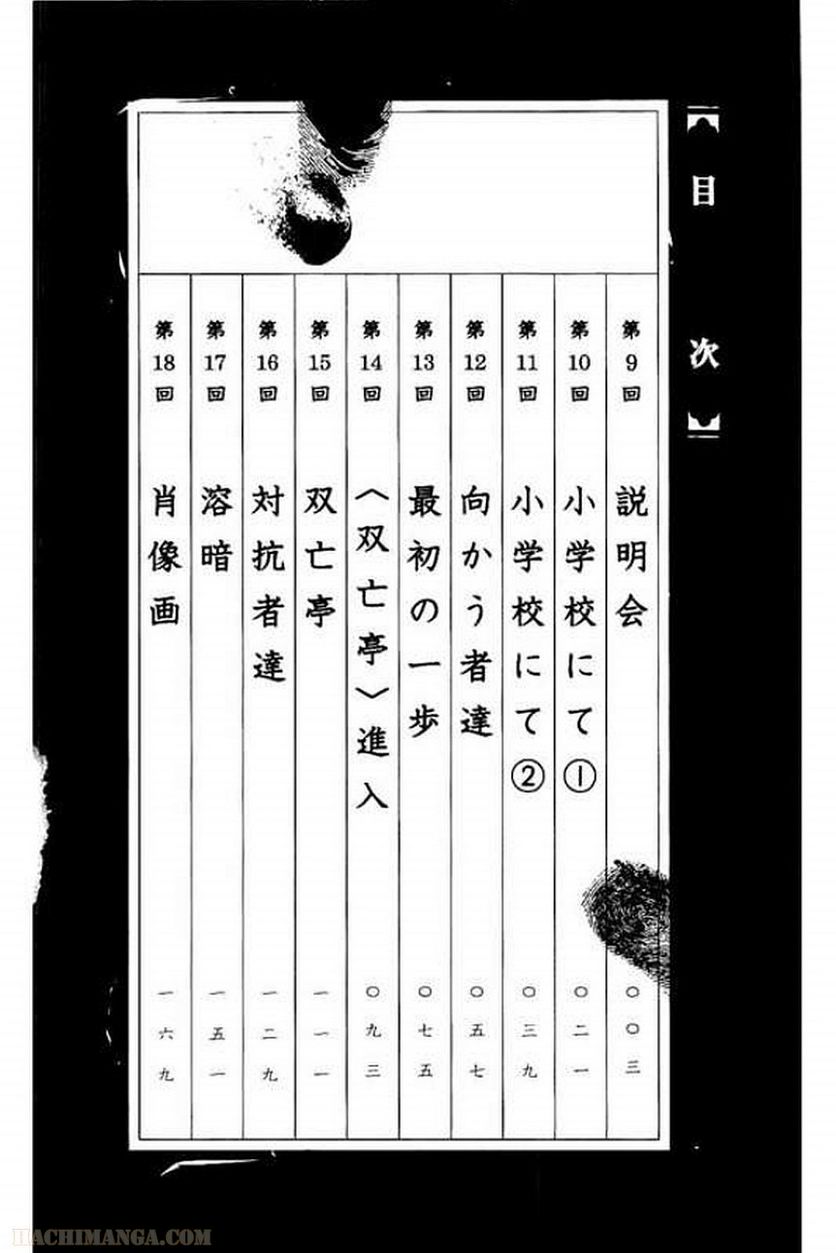 目次
第9回 説明会 〇〇三
第10回 小学校にて① 〇二一
第11回 小学校にて② 〇三九
第12回 向かう者達 〇五七
第13回 最初の一歩 〇七五
第14回 〈双亡亭〉進入 〇九三
第15回 双亡亭 一一一
第16回 対抗者達 一二九
第17回 溶暗 一五一
第18回 肖像画 一六九
HACHIMANGA.COM